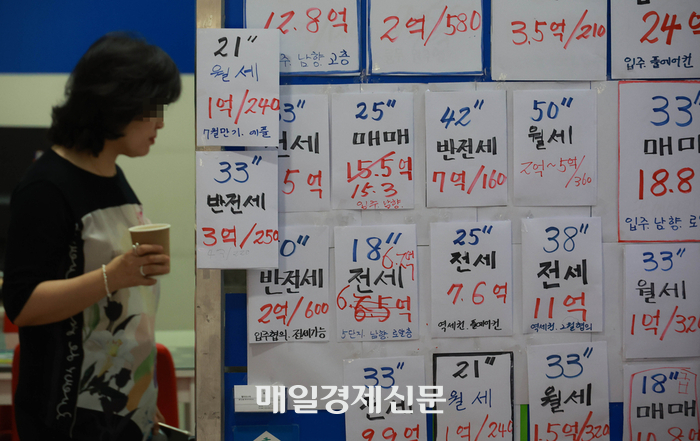 12.8억
입주. 남향. 고층
2억/580
3.5억/210
24억
입주. 풀에어컨
21"
월세
1억/240
7월만기. 예풀
33"
반전세
3억/250
3"
전세
5억
25"
매매
15.5억
15.3
입주 남향
42"
반전세
7억/160
50"
월세
2억~5억/360
33"
매매
18.8
입주 남향
0"
반전세
2억/600
입주협의. 전세가능
18"
전세
5단지 남향 로얄층
25"
전세
7.6억
역세권. 풀에어컨
38"
전세
11억
역세권. 2월협의
33"
월세
1억/320
33"
9.9억
21"
월세
1억/240
33"
월세
1.5억/320
18"
매매
10.8
매일경제신문